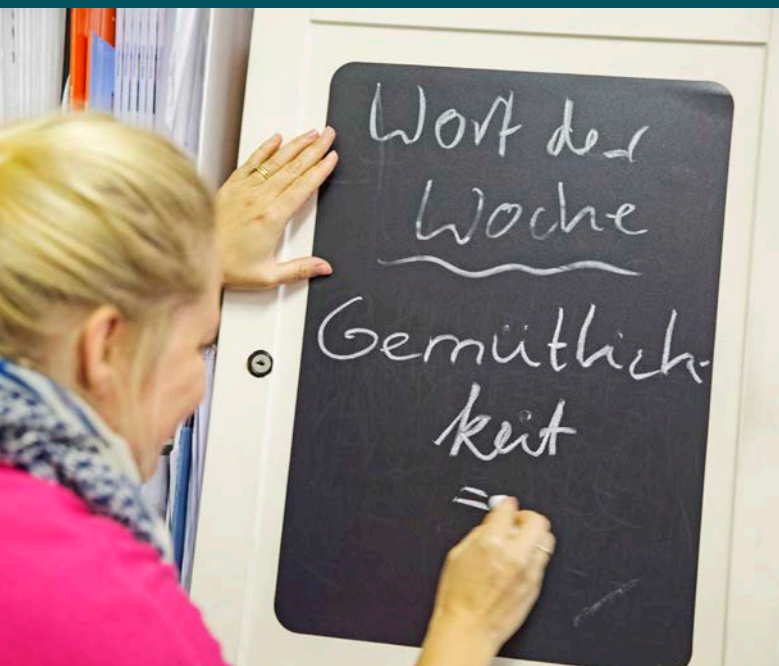 Wort der
Woche
Gemütlich-
keit
=